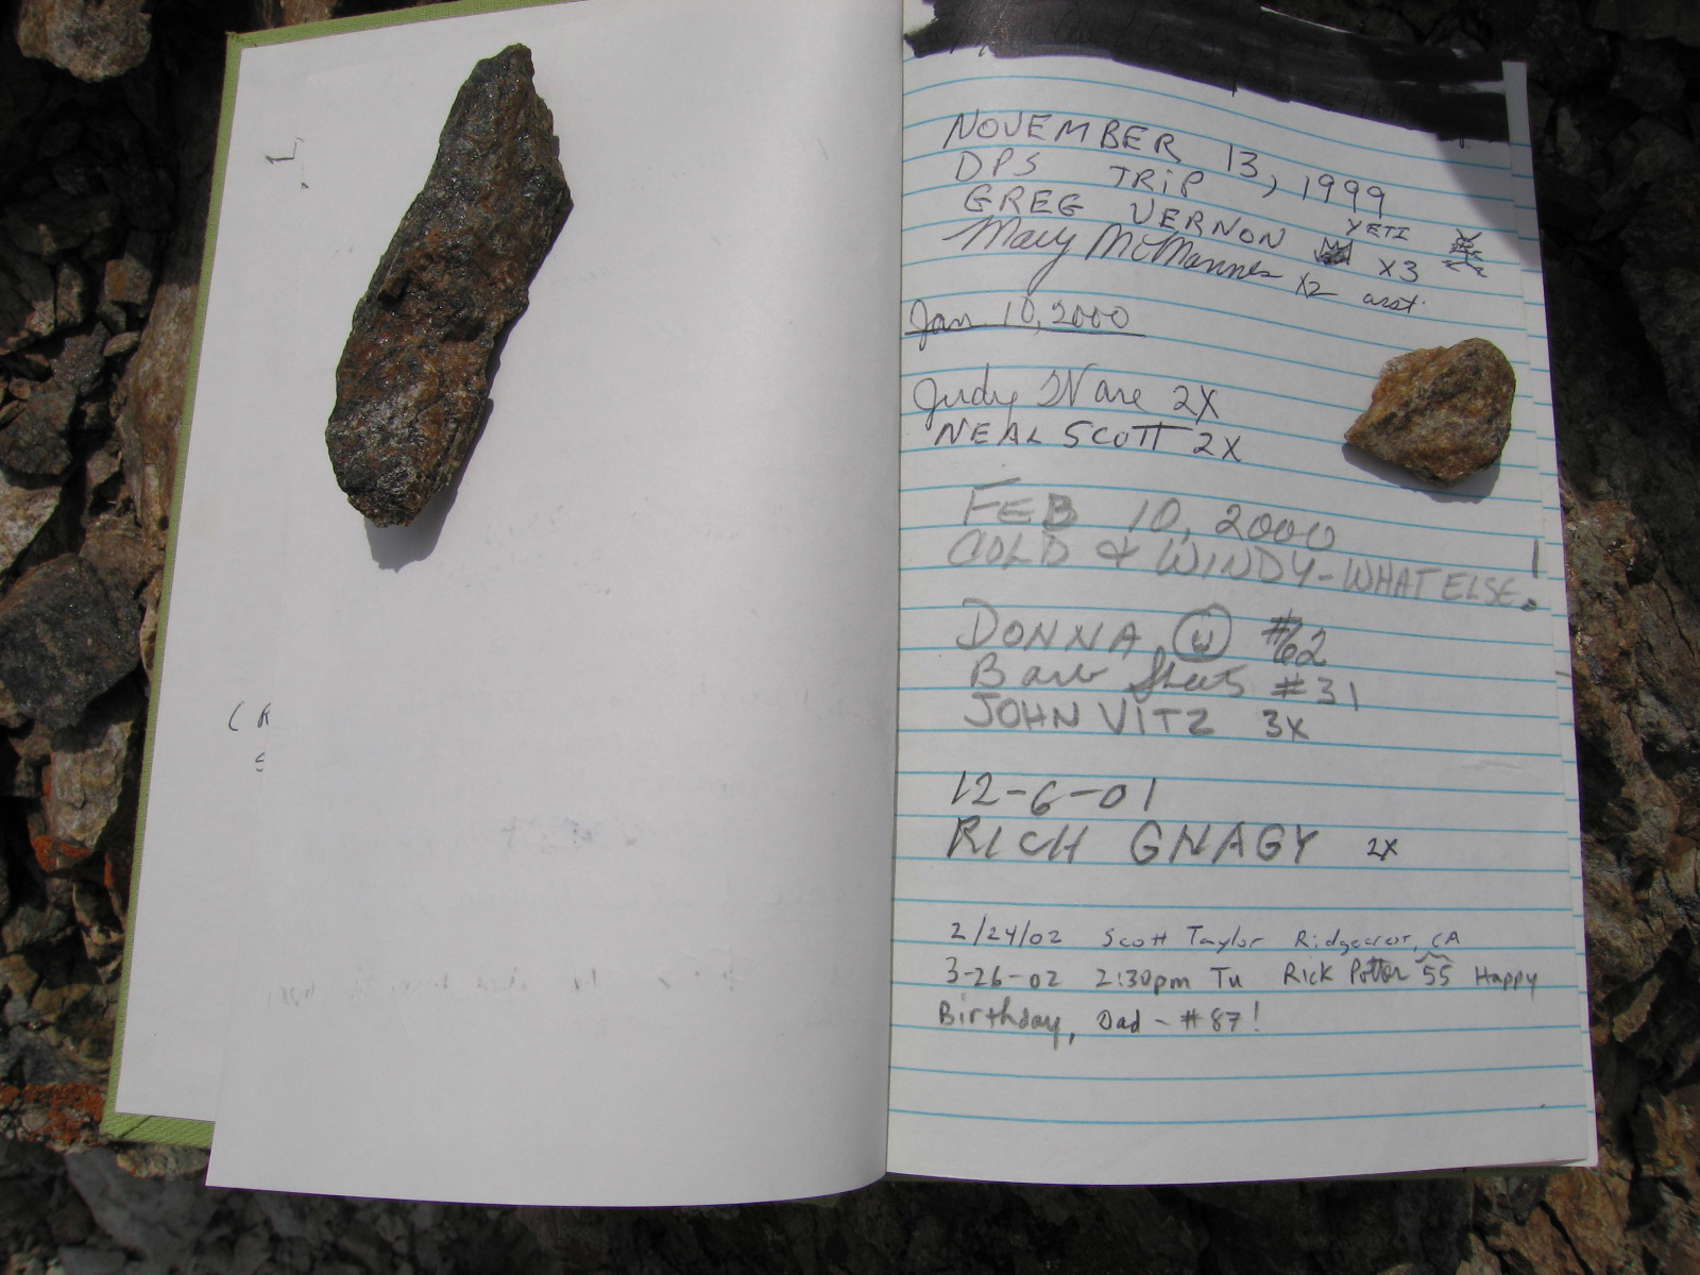 NOVEMBER 13, 1999
DPS TRIP
GREG VERNON X3 YETI
Mary McMannes X2
Jan 10, 2000
Judy Ware 2X
NEAL SCOTT 2X
FEB 10, 2000
COLD & WINDY - WHAT ELSE!
DONNA #62
Barb #31
JOHN VITZ 3X
12-6-01
RICH GNAGY 2X
2/24/02 Scott Taylor Ridgecrest, CA
3-26-02 2:30pm Tu Rick Potter 55 Happy
Birthday, Dad - #87!